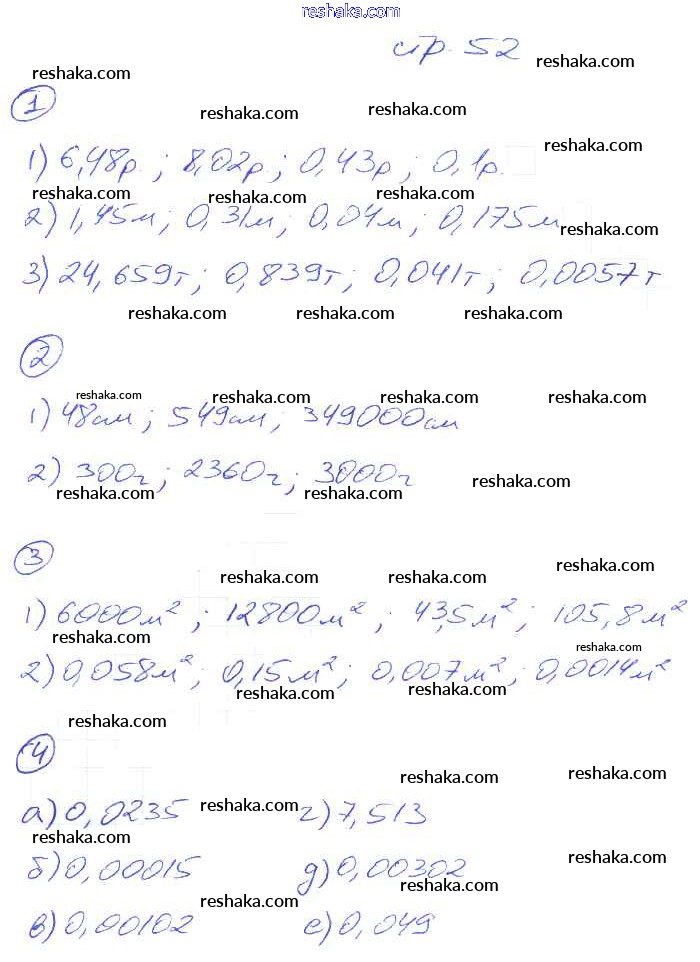 reshaka.com
стр. 52
reshaka.com reshaka.com
1 reshaka.com reshaka.com
reshaka.com
1) 6,48р.; 8,02р; 0,43р; 0,1р.
reshaka.com reshaka.com reshaka.com
2) 1,45м; 0,31м; 0,04м; 0,175м
reshaka.com
3) 24,659т; 0,839т; 0,041т; 0,0057т
reshaka.com reshaka.com reshaka.com
2
reshaka.com reshaka.com reshaka.com reshaka.com
1) 48см; 549см; 349000см
2) 300г; 2360г; 3000г
reshaka.com reshaka.com reshaka.com
3
reshaka.com reshaka.com reshaka.com
1) 6000м²; 12800м²; 43,5м²; 105,8м²
reshaka.com reshaka.com
2) 0,058м²; 0,15м²; 0,007м²; 0,0014м²
reshaka.com reshaka.com
reshaka.com
4
reshaka.com reshaka.com
а) 0,0235 reshaka.com г) 7,513
reshaka.com
б) 0,00015 д) 0,00302 reshaka.com
reshaka.com reshaka.com
в) 0,00102 е) 0,049
reshaka.com reshaka.com